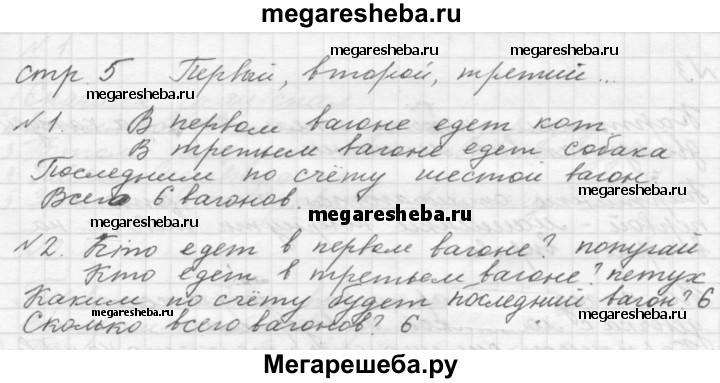 megaresheba.ru
megaresheba.ru
megaresheba.ru
стр. 5 Первый, второй, третий...
megaresheba.ru
megaresheba.ru
№1. В первом вагоне едет кот
В третьем вагоне едет собака
megaresheba.ru
megaresheba.ru
Последним по счёту шестой вагон.
Всего 6 вагонов.
megaresheba.ru
megaresheba.ru
megaresheba.ru
№2. Кто едет в первом вагоне? попугай
Кто едет в третьем вагоне? петух
megaresheba.ru
megaresheba.ru
Каким по счёту будет последний вагон? 6
Сколько всего вагонов? 6
megaresheba.ru
Мегарешеба.ру